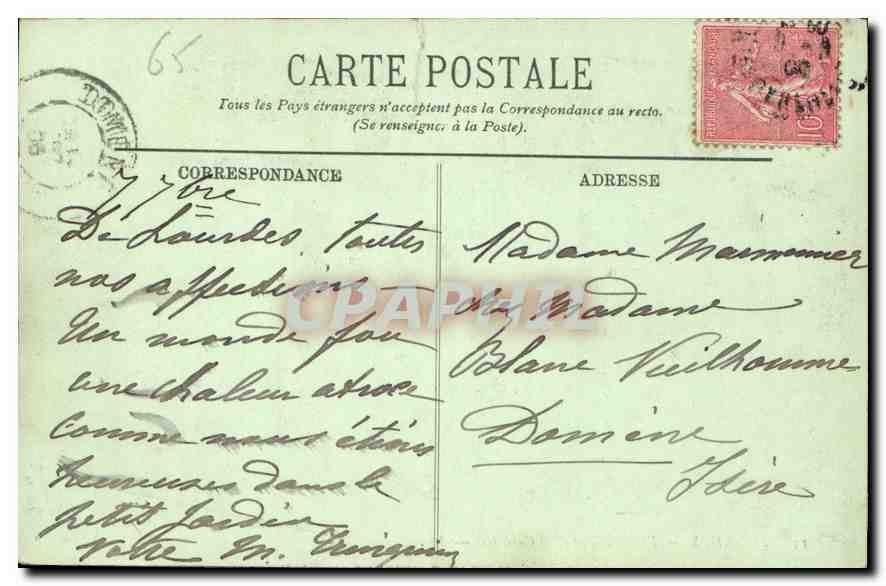 65
CARTE POSTALE
Tous les Pays étrangers n'acceptent pas la Correspondance au recto.
(Se renseigner à la Poste).
CORRESPONDANCE
7 7bre
De Lourdes, toutes
nos affections –
Un monde fou
une chaleur atroce
comme nous étions
heureuses dans le
petit jardin
Votre M.
ADRESSE
Madame Marmonnier
chez Madame
Blanc Vieilhomme
Domène
Isère
DOMÈNE
10
CPAPHIL